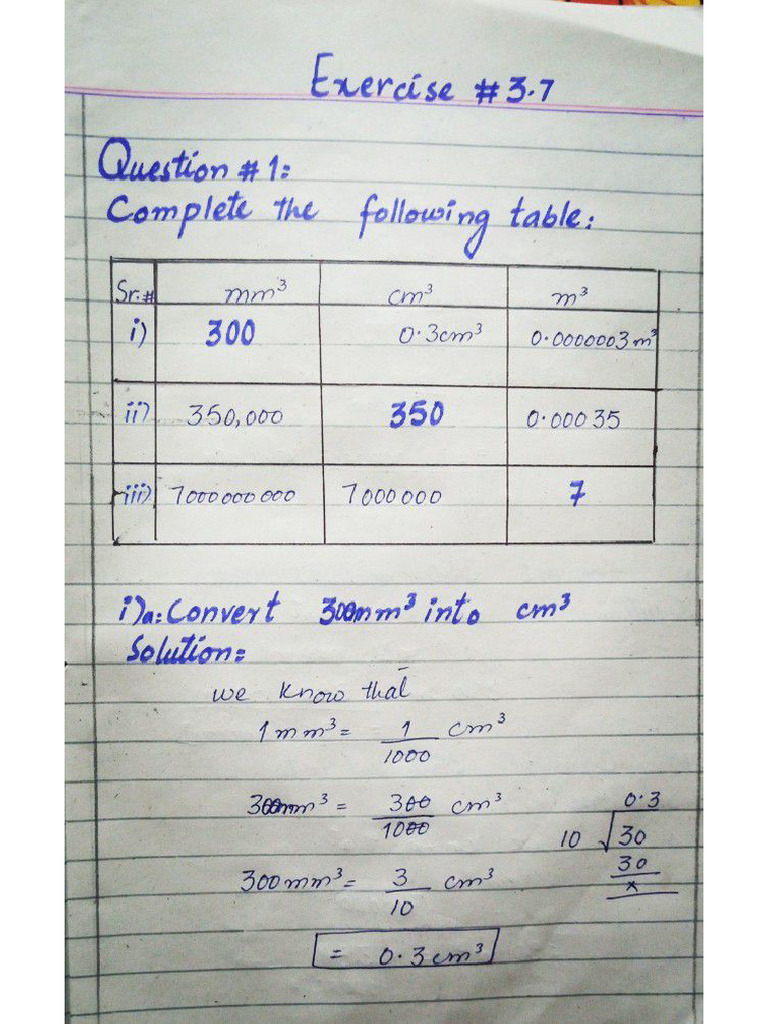 Exercise #3.7
Question #1:
Complete the following table:
Sr.# mm³ cm³ m³
i) 300 0.3cm³ 0.0000003m³
ii) 350,000 350 0.00035
iii) 7000000000 7000000 7
i)a: Convert 300mm³ into cm³
Solution:
we know that
1mm³ = 1/1000 cm³
300mm³ = 300/1000 cm³
300mm³ = 3/10 cm³
= 0.3cm³
0.3
10 √30
30
x